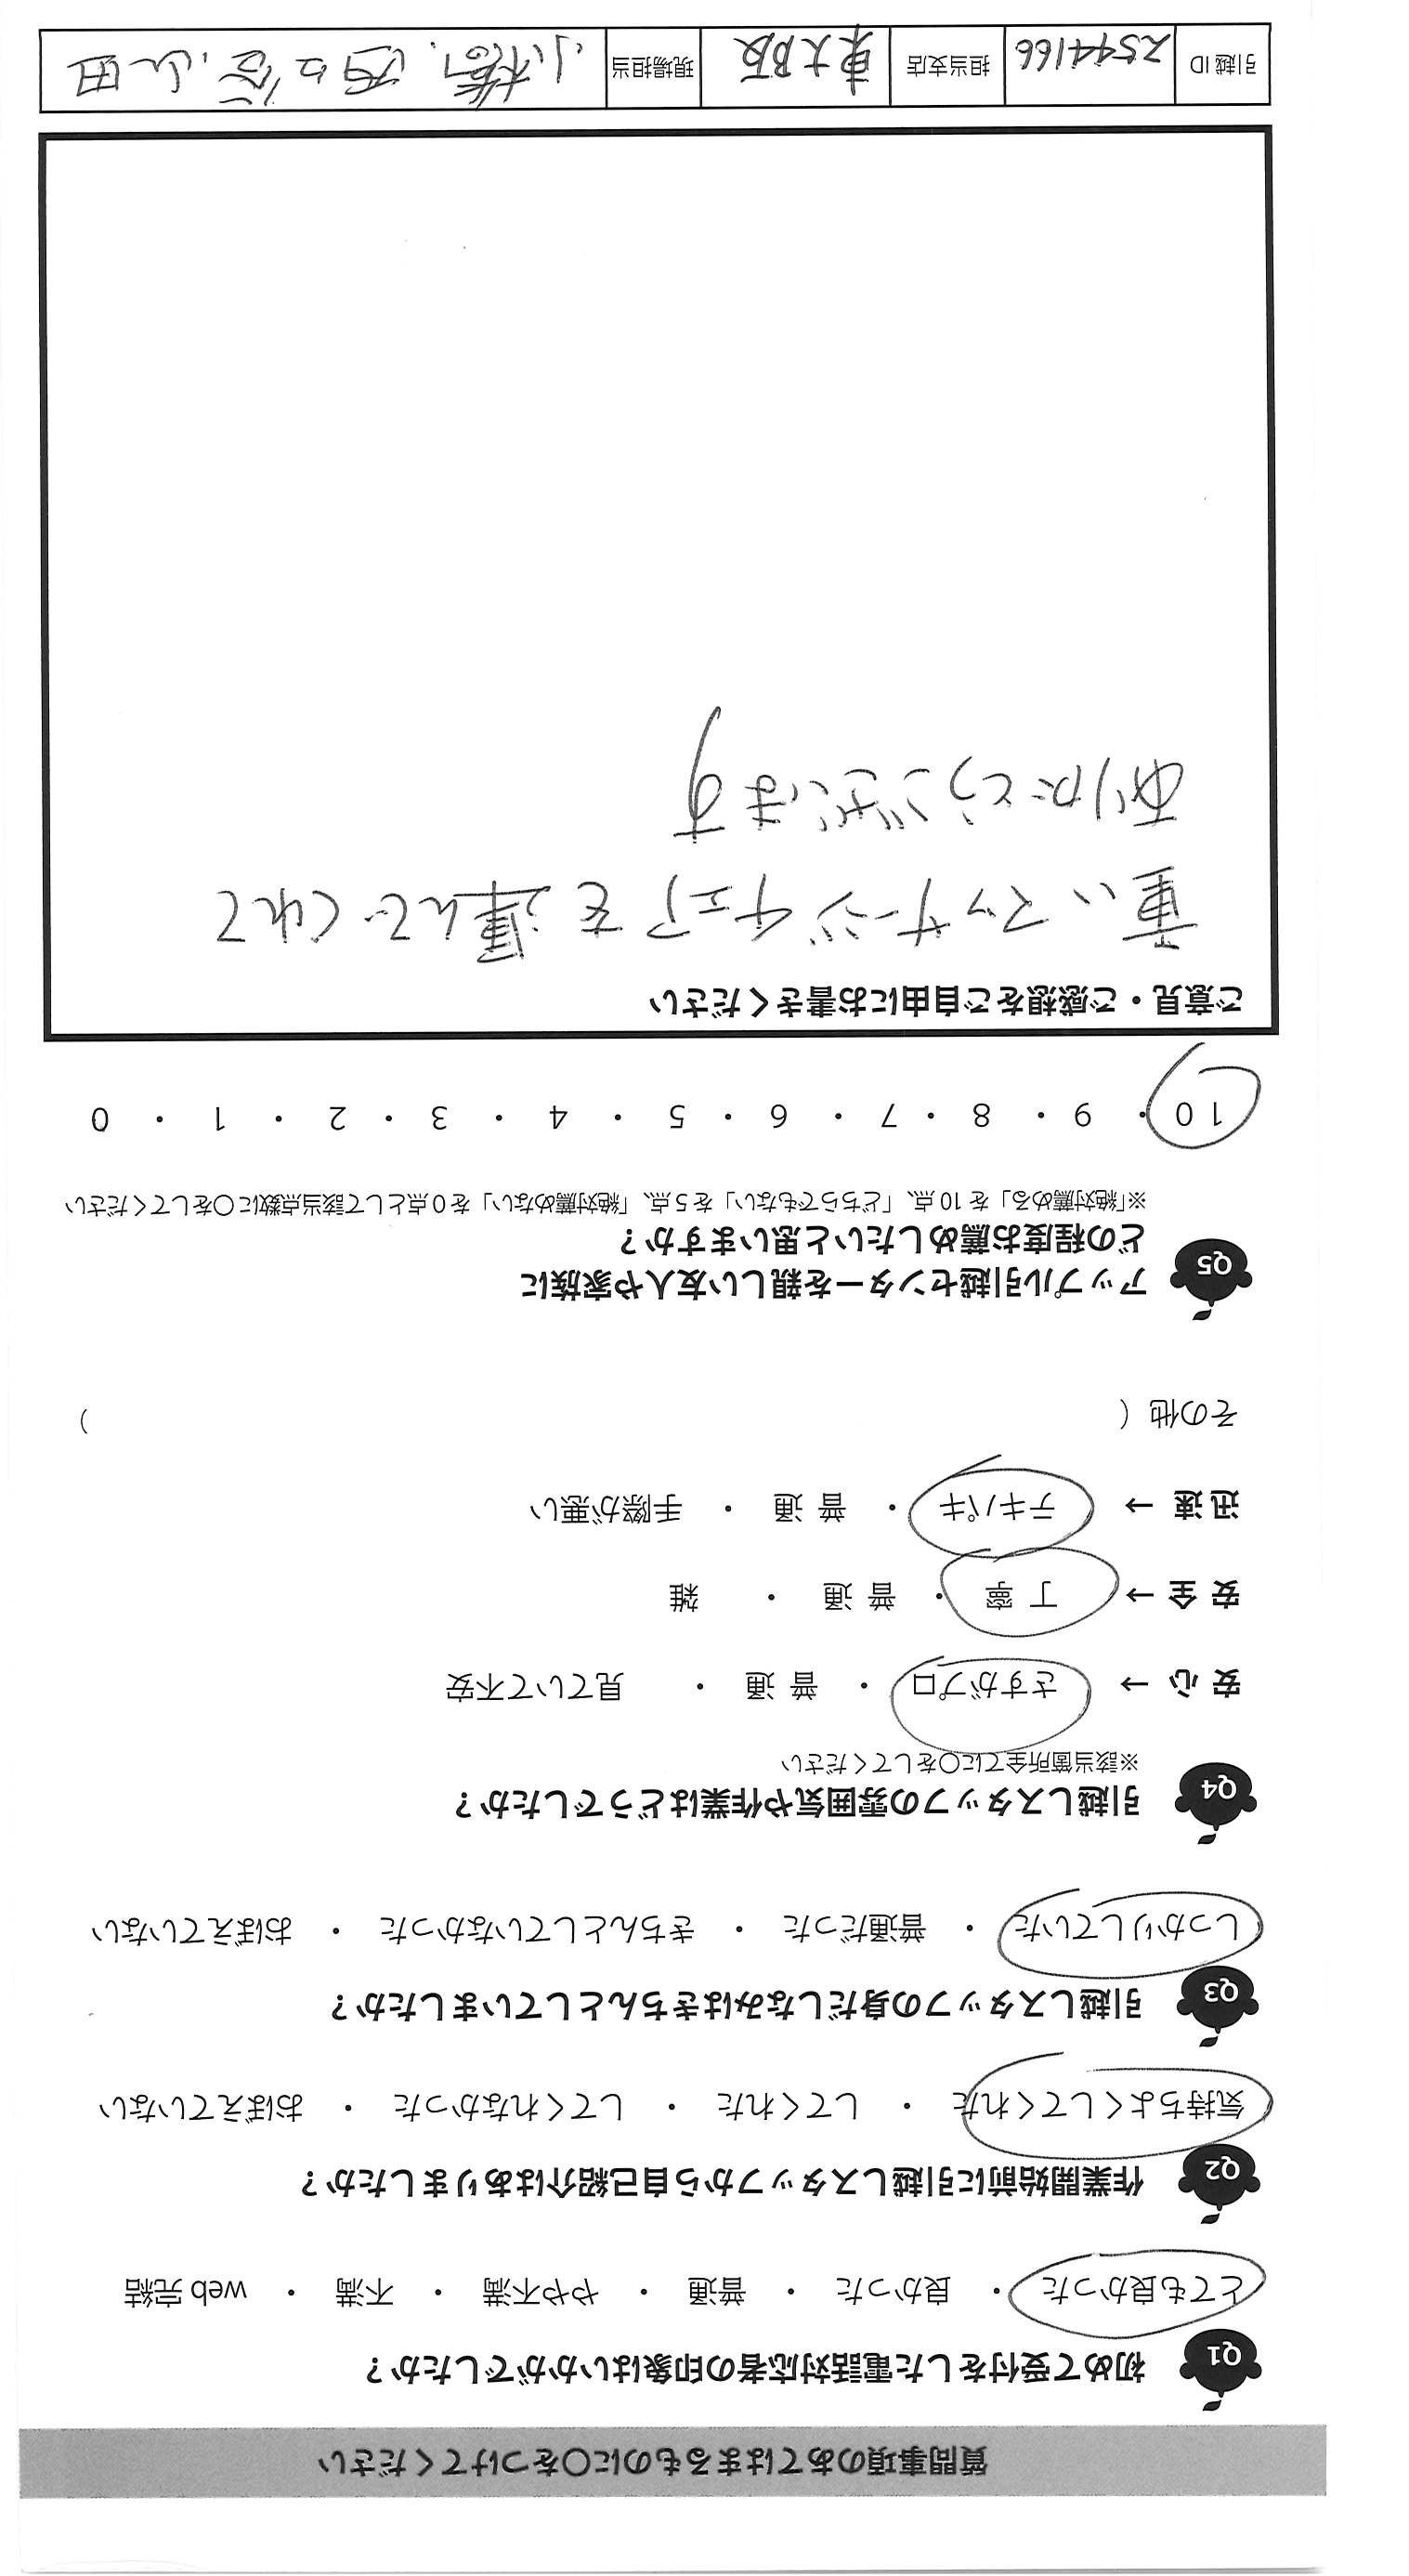 質問事項のあてはまるものに〇をつけてください
Q1 初めて受付をした電話対応者の印象はいかがでしたか？
とても良かった ・ 良かった ・ 普通 ・ やや不満 ・ 不満 ・ web 完結
Q2 作業開始前に引越しスタッフから自己紹介はありましたか？
気持ちよくしてくれた ・ してくれた ・ してくれなかった ・ おぼえていない
Q3 引越しスタッフの身だしなみはきちんとしていましたか？
しっかりしていた ・ 普通だった ・ きちんとしていなかった ・ おぼえていない
Q4 引越しスタッフの雰囲気や作業はどうでしたか？
※該当箇所全てに〇をしてください
安 心 → さすがプロ ・ 普 通 ・ 見ていて不安
安 全 → 丁 寧 ・ 普 通 ・ 雑
迅 速 → テキパキ ・ 普 通 ・ 手際が悪い
その他（ ）
Q5 アップル引越センターを親しい友人や家族に
どの程度お薦めしたいと思いますか？
※「絶対薦める」を 10 点、「どちらでもない」を 5 点、「絶対薦めない」を 0 点として該当点数に〇をしてください
10 ・ 9 ・ 8 ・ 7 ・ 6 ・ 5 ・ 4 ・ 3 ・ 2 ・ 1 ・ 0
ご意見・ご感想をご自由にお書きください
重いマッサージチェアを運んでくれて
ありがとうございます
引越 ID 2544166 担当支店 東大阪 現場担当 小橋. 四ツ谷. 山田